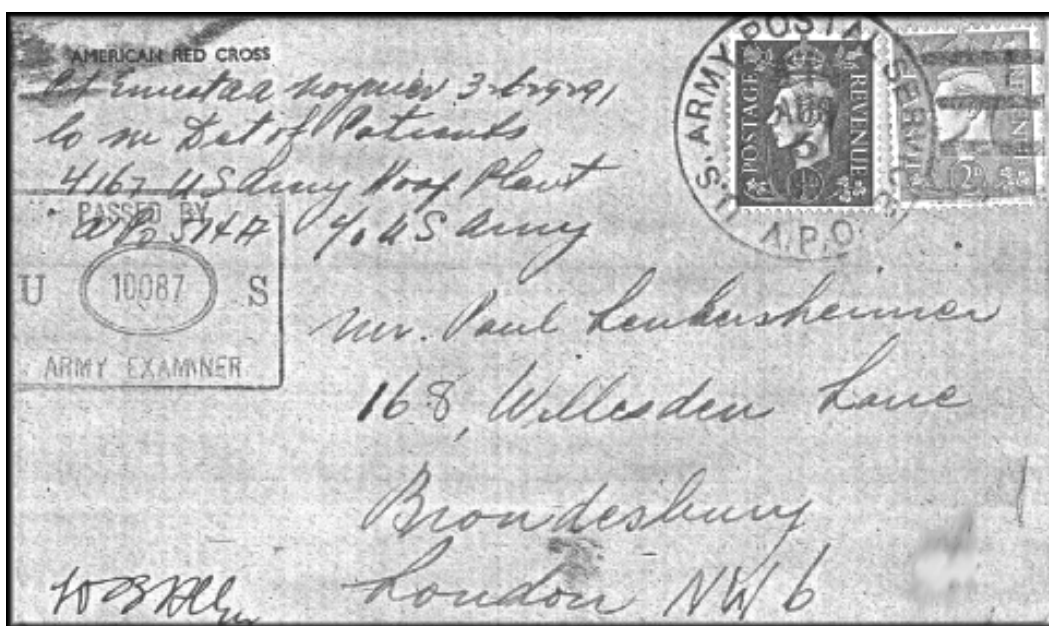 AMERICAN RED CROSS
Co M Det of Patients
4167 US Army Hosp Plant
APO 514A % US Army
PASSED BY
U 10087 S
ARMY EXAMINER
U.S. ARMY POSTAL SERVICE
AUG
5
A.P.O.
POSTAGE REVENUE
2D
Mr. Paul Lenkersheimer
168, Willesden Lane
Brondesbury
London NW6